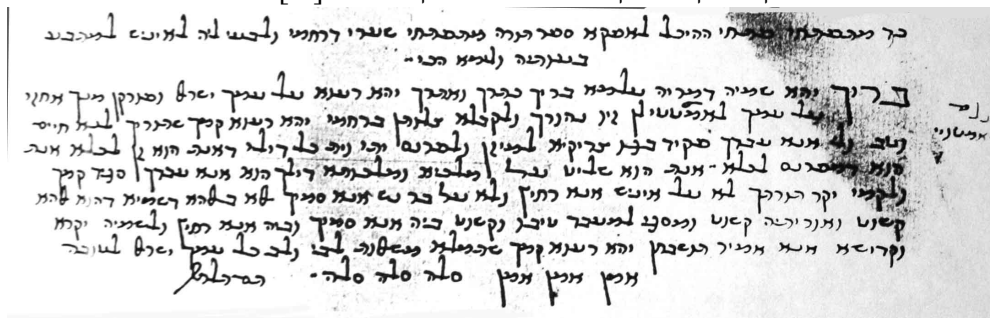 כד מתפתחי פתחי ההיכל לאפקא ספר תורה מתפתחי שערי דרחמי ולבעי ליה לאיניש למתבע
בעותיה ולימא הכי
בריך יהא שמיה דמריה עלמא בריך כתרך ואתרך יהא רעוא על עמך ישראל ופורקן מינך אחזי
על עמך לאמטויי לן גין נהורך ולקבלא צלותן ברחמי יהא רעוא קמך שתוריך לנא חיים
וטב ולי אנא עבדך פקיד בגו צדיקיא למגינן ולמרחם יתי וית כל דילי דאנת הוא זן לכלא אנת
הוא מפרנס לכלא אנת הוא שליט על מלכיא ומלכותא דילך הוא אנא עבדך סגיד קמך
ולקמי יקר תורתך לא על איניש אנא רחיץ ולא על בר נש אנא סמיך אלא באלהא דשמיא דהוא אלהא
קשוט ואוריתיה קשוט ומסגי למעבד טיבו וקשוט ביה אנא סמיך וביה אנא רחיץ ולשמיה יקרא
וקדישא אנא אמיר תושבחן יהא רעוא קמך שתמלא משאלות לבי ולב כל עמך ישראל לטובה
אמן אמן אמן סלה סלה סלה